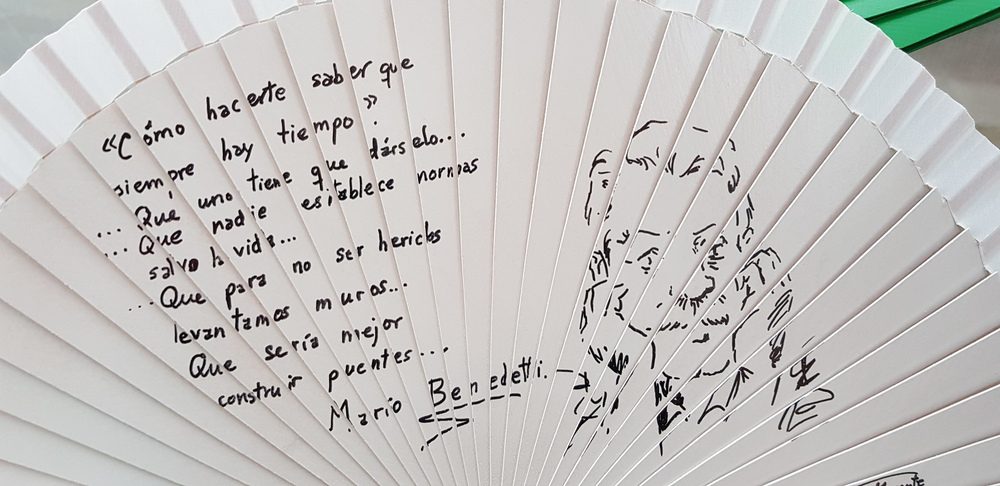 «Cómo hacerte saber que
siempre hay tiempo?»
... Que uno tiene que dárselo...
... Que nadie establece normas
salvo la vida...
... Que para no ser heridos
levantamos muros...
Que sería mejor
construir puentes...
Mario Benedetti.